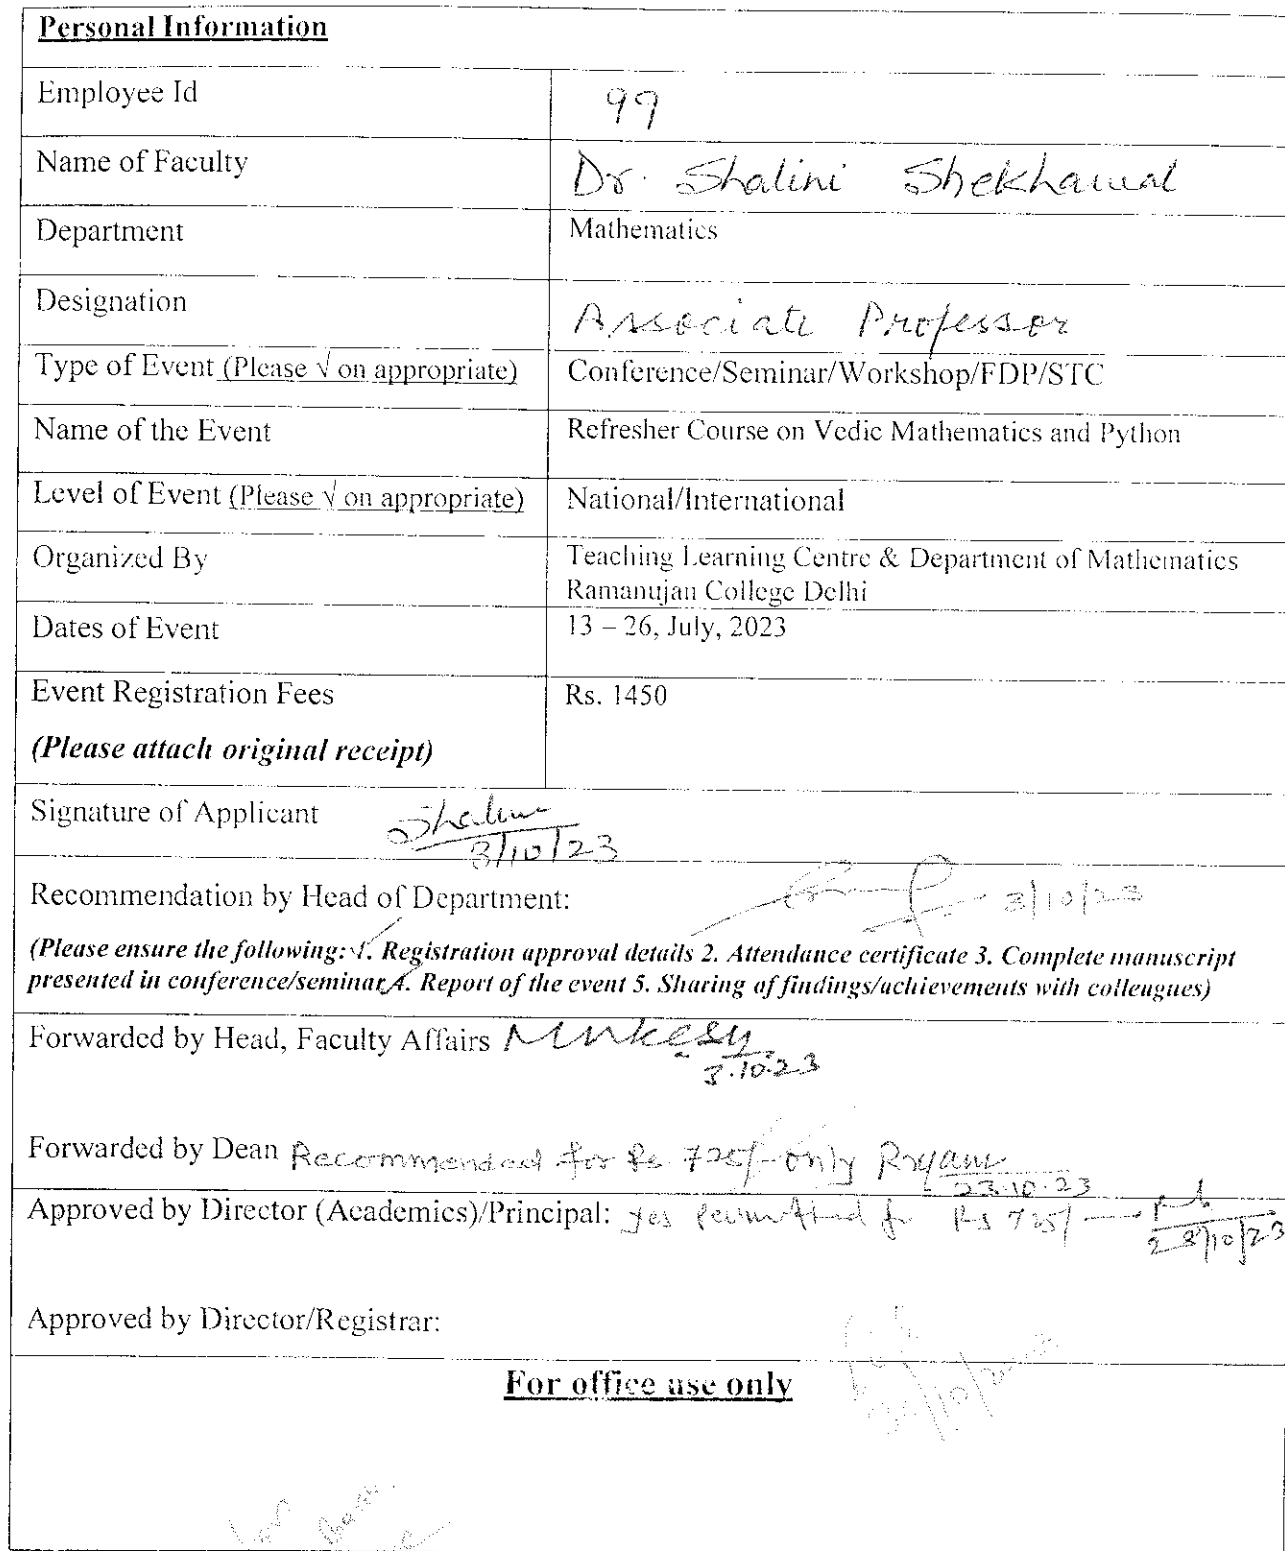 Personal Information
Employee Id 99
Name of Faculty Dr. Shalini Shekhawat
Department Mathematics
Designation Associate Professor
Type of Event (Please √ on appropriate) Conference/Seminar/Workshop/FDP/STC
Name of the Event Refresher Course on Vedic Mathematics and Python
Level of Event (Please √ on appropriate) National/International
Organized By Teaching Learning Centre & Department of Mathematics
Ramanujan College Delhi
Dates of Event 13 – 26, July, 2023
Event Registration Fees Rs. 1450
(Please attach original receipt)
Signature of Applicant Shalini
3/10/23
Recommendation by Head of Department: 3/10/23
(Please ensure the following: 1. Registration approval details 2. Attendance certificate 3. Complete manuscript
presented in conference/seminar 4. Report of the event 5. Sharing of findings/achievements with colleagues)
Forwarded by Head, Faculty Affairs Mukesh
3.10.23
Forwarded by Dean Recommended for Rs 725/- only
23.10.23
Approved by Director (Academics)/Principal: Yes permitted for Rs 725/-
23/10/23
Approved by Director/Registrar:
For office use only